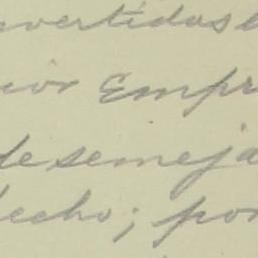 vertidas
ior Empr
de semeja
echo; por